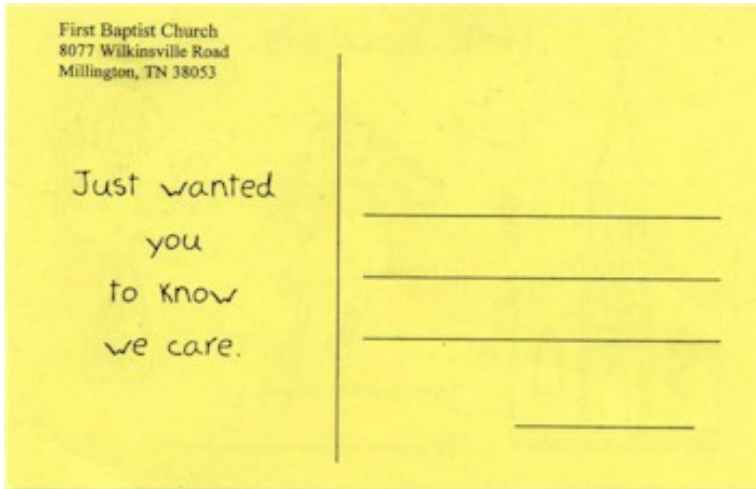 First Baptist Church
8077 Wilkinsville Road
Millington, TN 38053
Just wanted
you
to know
we care.